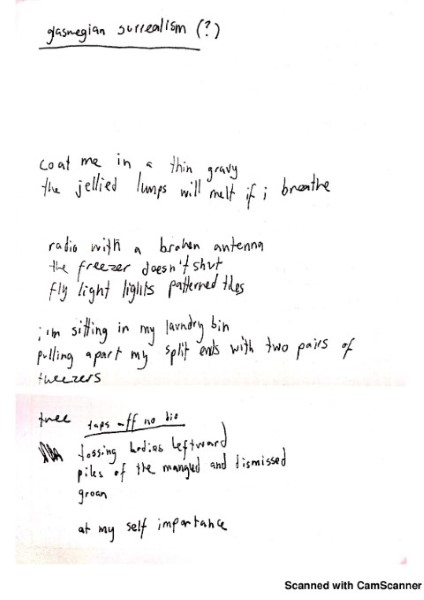 glasnegian surrealism (?)
coat me in a thin gravy
the jellied lumps will melt if i breathe
radio with a broken antenna
the freezer doesn't shut
fly light lights patterned tiles
i'm sitting in my laundry bin
pulling apart my split ends with two pairs of
tweezers
taps aff no bio
tossing bodies leftward
piles of the mangled and dismissed
groan
at my self importance
Scanned with CamScanner